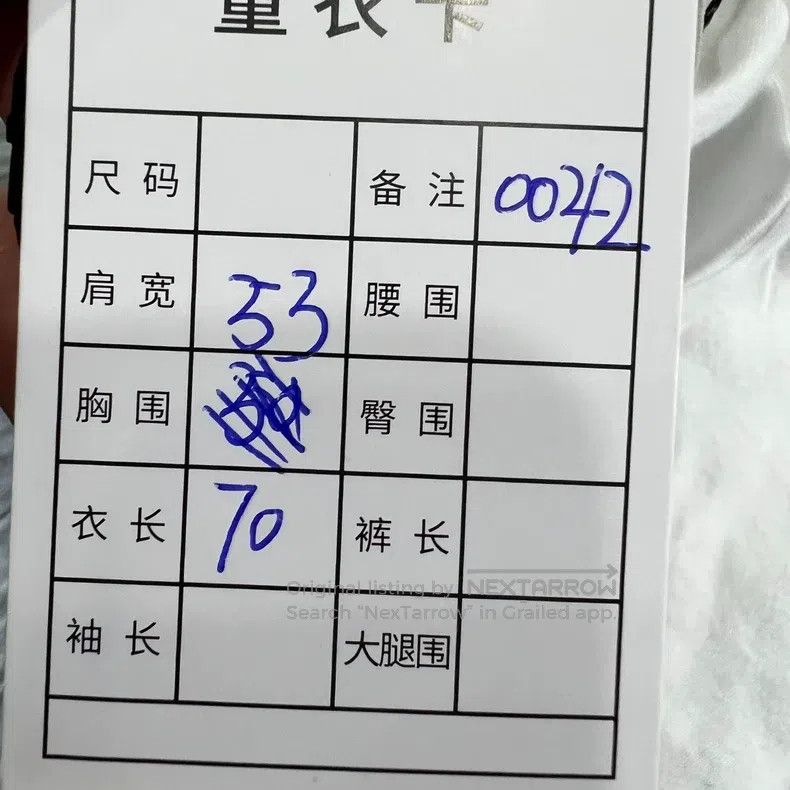 量衣卡
尺码 备注 0042
肩宽 53 腰围
胸围 臀围
衣长 70 裤长
Original listing by NEXTARROW
Search "NexTarrow" in Grailed app.
袖长 大腿围